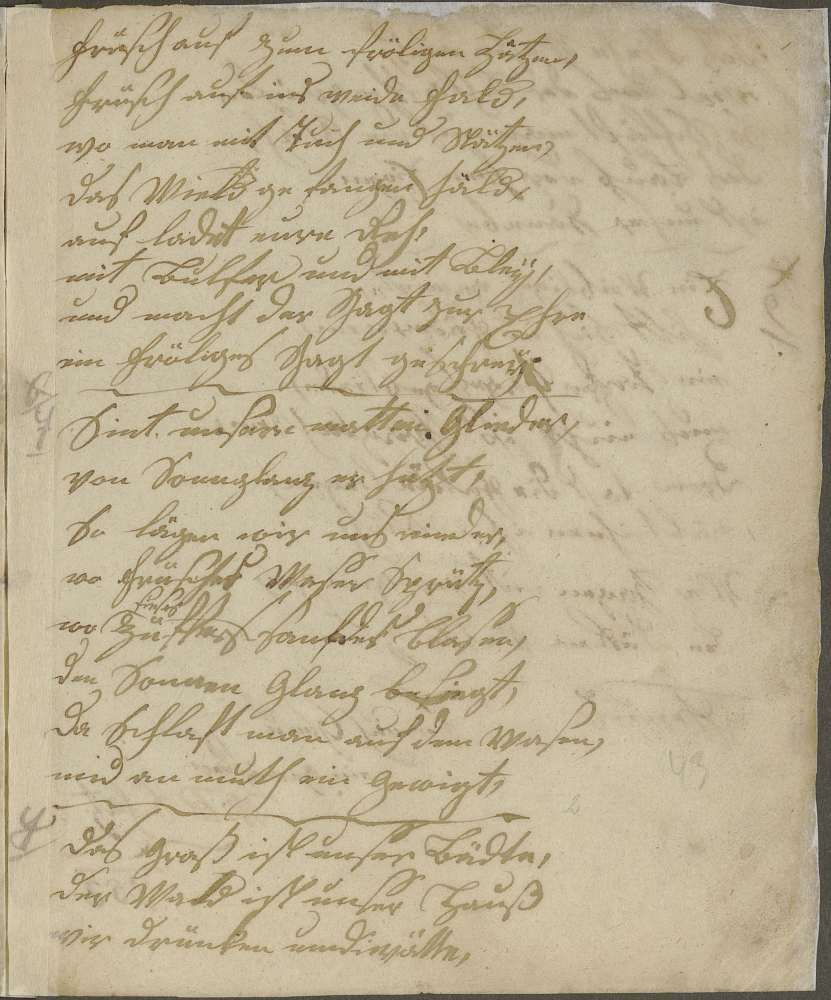 früsch auf zum fröligen Hätzen,
früsch auf ins weide Fald,
wo man mit Tuch und Nätzen,
das Wield ge fangen häld,
auf ladet eure
mit Bulfer und mit Bley,
und macht der Jagt zur Ehre
ein fröliges Jagt geschrey
Sint unsere matten Glieder,
von Sonnglanz er hitzt,
So lägen wir uns nieder,
wo früsches Waser Sprütz,
wo Zäffers Sanftes blasen,
den Sonnen Glanz besiegt,
Da Schlaft man auf dem Wasen,
und an muth ein gewigt,
das Graß ist unser Bädte,
der Wald ist unser Hauß
wir drünken umdiwätte,